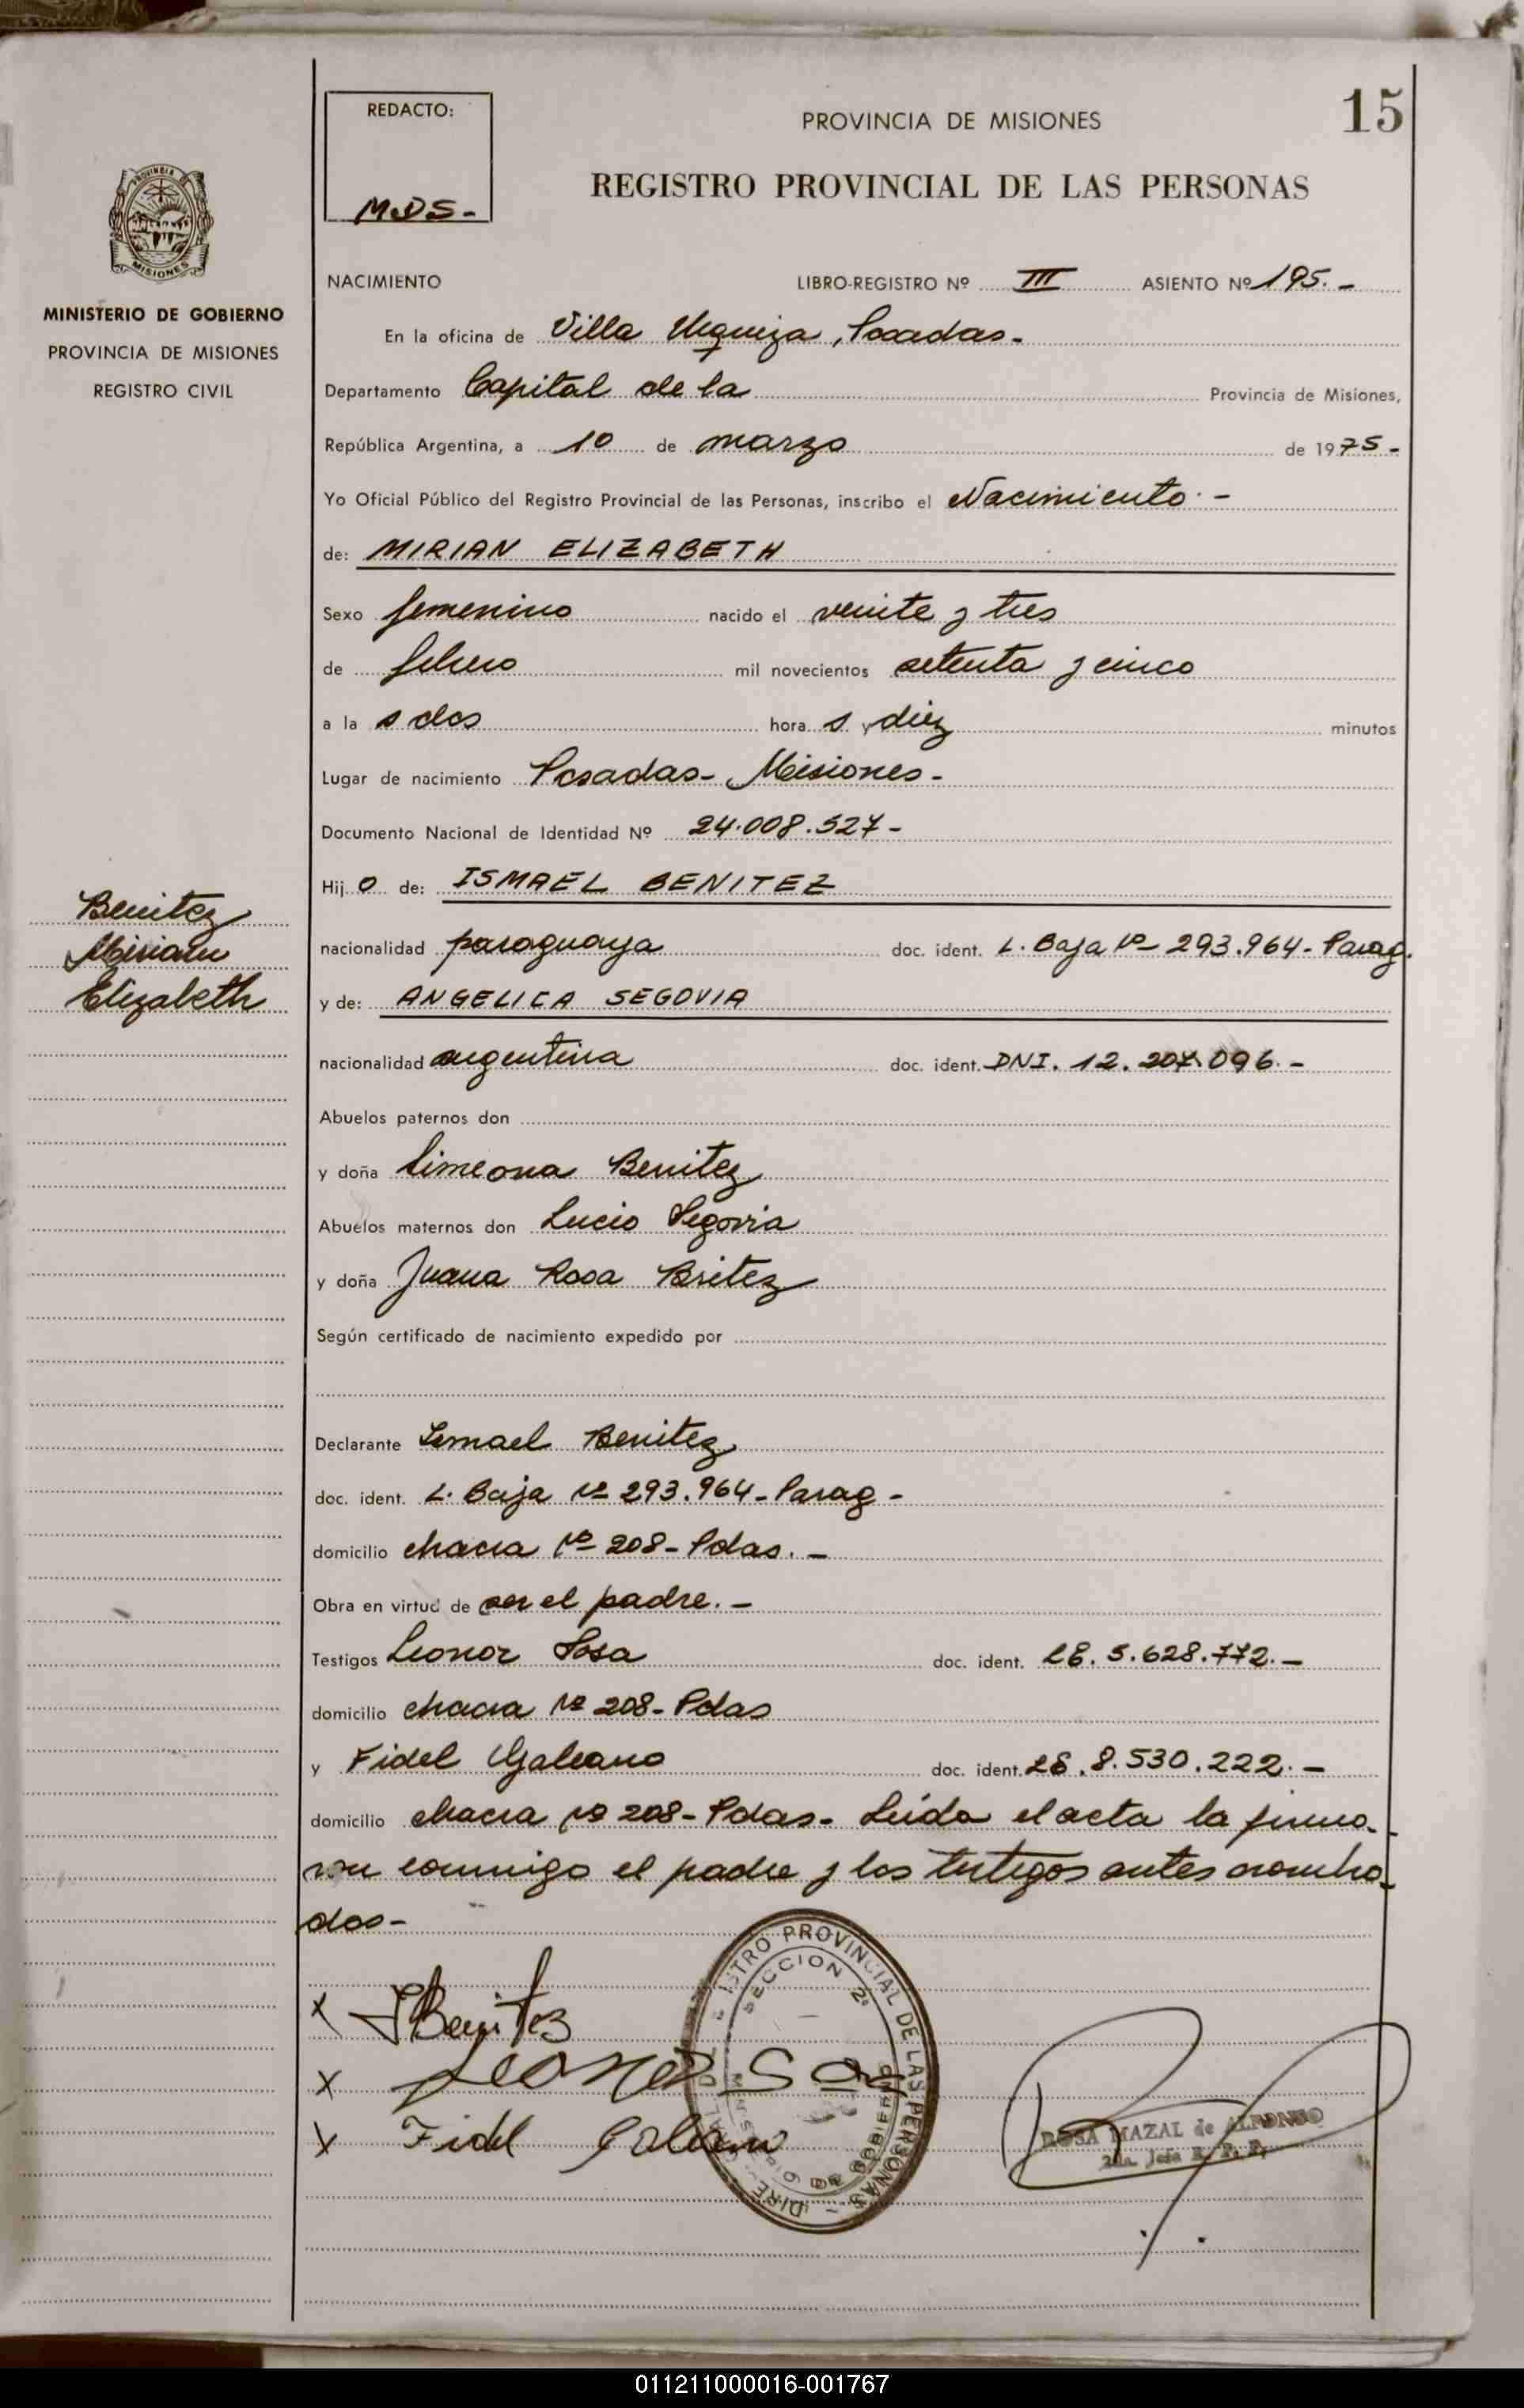 REDACTO:
M.D.S-
PROVINCIA DE MISIONES
15
REGISTRO PROVINCIAL DE LAS PERSONAS
PROVINCIA DE
MISIONES
MINISTERIO DE GOBIERNO
PROVINCIA DE MISIONES
REGISTRO CIVIL
NACIMIENTO LIBRO-REGISTRO Nº III ASIENTO Nº 195.-
En la oficina de Villa Urquiza, Posadas-
Departamento Capital de la Provincia de Misiones,
República Argentina, a 10 de marzo de 1975-
Yo Oficial Público del Registro Provincial de las Personas, inscribo el Nacimiento.-
de: MIRIAN ELIZABETH
Sexo femenino nacido el veinte y tres
de febrero mil novecientos setenta y cinco
a la s dos hora s y diez minutos
Lugar de nacimiento Posadas- Misiones-
Documento Nacional de Identidad Nº 24.008.527-
Hij o de: ISMAEL BENITEZ
Benitez
Miriam
Elizabeth
nacionalidad paraguaya doc. ident. L. Baja Nº 293.964- Parag.
y de: ANGELICA SEGOVIA
nacionalidad argentina doc. ident. DNI. 12.207.096.-
Abuelos paternos don
y doña Simeona Benitez
Abuelos maternos don Lucio Segovia
y doña Juana Rosa Britez
Según certificado de nacimiento expedido por
Declarante Ismael Benitez
doc. ident. L. Baja Nº 293.964- Parag-
domicilio chacra Nº 208- Pdas.-
Obra en virtud de ser el padre.-
Testigos Leonor Sosa doc. ident. LC. 5.628.772.-
domicilio chacra Nº 208- Pdas
y Fidel Galeano doc. ident. LE. 8.530.222.-
domicilio chacra Nº 208- Pdas- Leida el acta la firma-
ron conmigo el padre y los testigos antes nombra-
dos-
x Benitez
x Leonor Sosa
x Fidel Galeano
ISTRO PROVINCIAL DE LAS PERSONAS
SECCION 2ª
ROSA MAZAL de ALFONSO
2da. Jefa R. P. P.
011211000016-001767